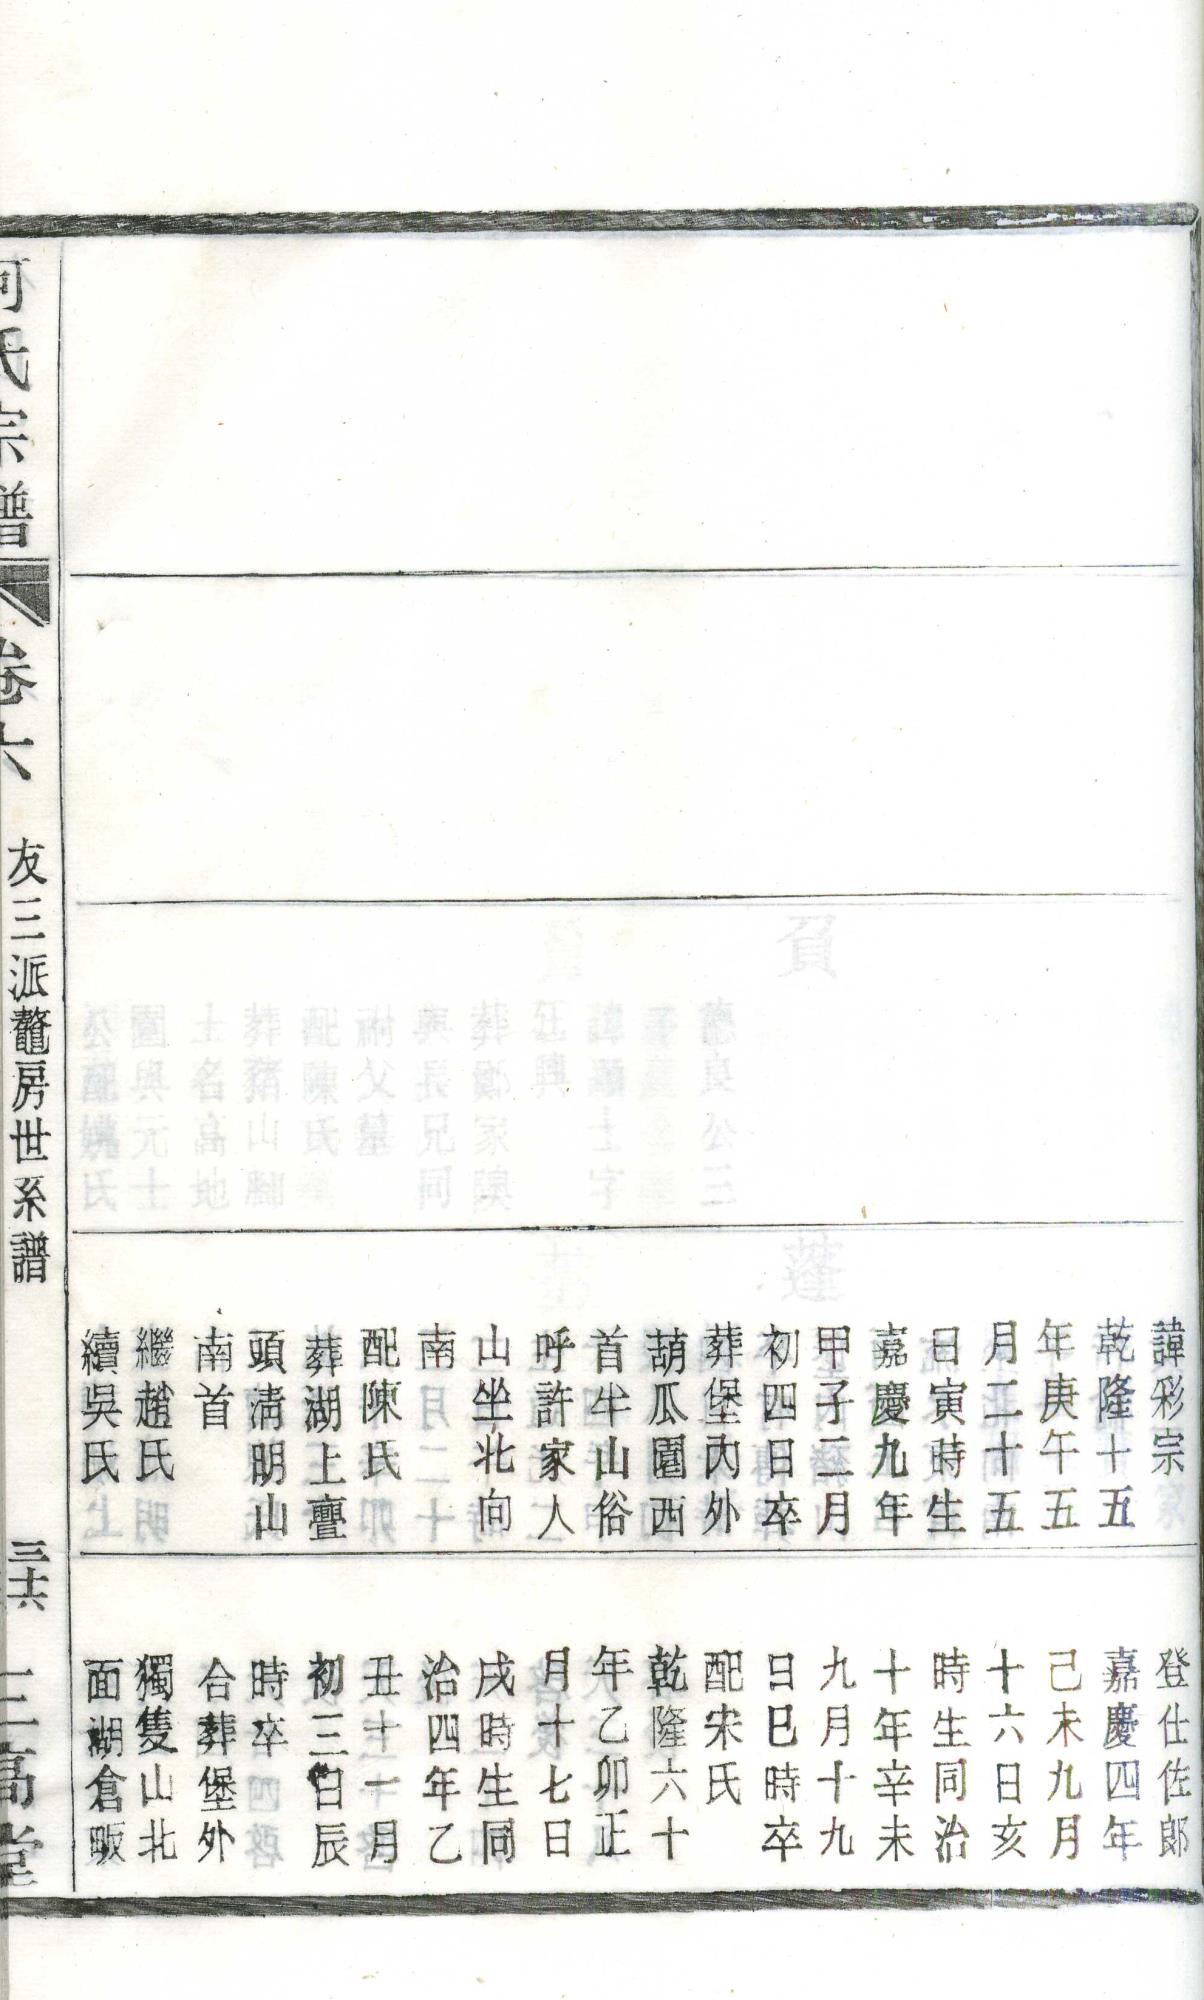 諱彩宗
乾隆十五
年庚午五
月二十五
日寅時生
嘉慶九年
甲子二月
初四日卒
葬堡內外
葫瓜園西
首牛山俗
呼許家人
山坐北向
南
配陳氏
葬湖上疊
頭清明山
南首
繼趙氏
續吳氏
登仕佐郎
嘉慶四年
己未九月
十六日亥
時生同治
十年辛未
九月十九
日巳時卒
配宋氏
乾隆六十
年乙卯正
月十七日
戌時生同
治四年乙
丑十一月
初三日辰
時卒
合葬堡外
獨隻山北
面湖倉畈
何氏宗譜
卷六
友三派鼇房世系譜
三十六
三高堂